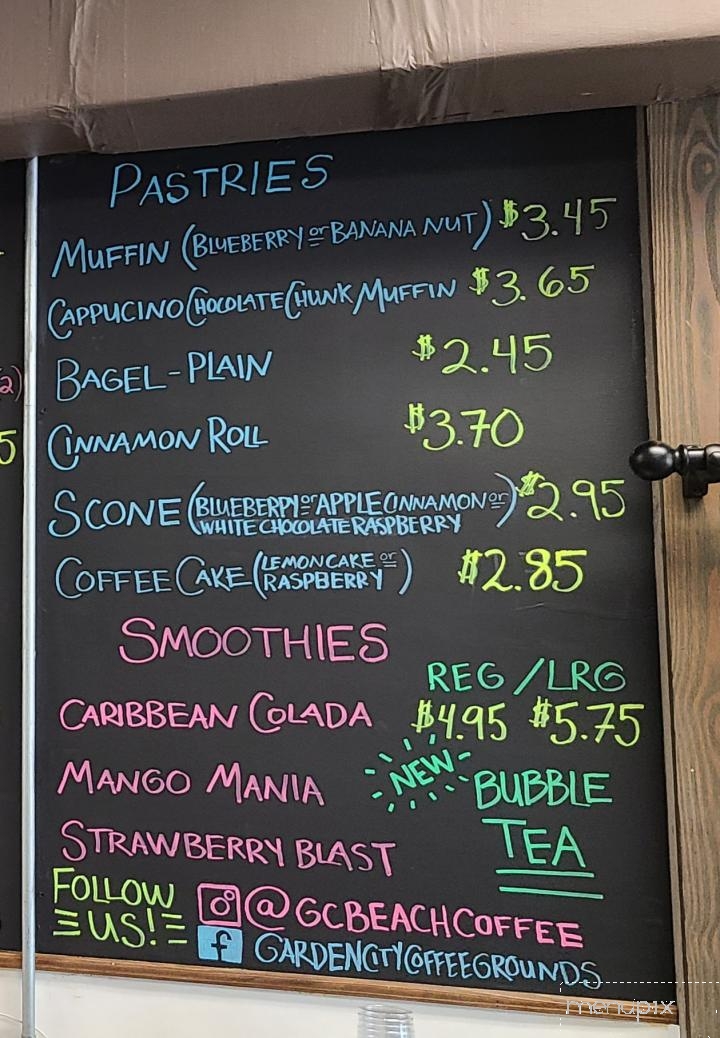 PASTRIES
MUFFIN (BLUEBERRY or BANANA NUT) $3.45
CAPPUCINO CHOCOLATE CHUNK MUFFIN $3.65
BAGEL - PLAIN $2.45
CINNAMON ROLL $3.70
SCONE (BLUEBERRY or APPLE CINNAMON or WHITE CHOCOLATE RASPBERRY) $2.95
COFFEE CAKE (LEMON CAKE or RASPBERRY) $2.85
SMOOTHIES
REG / LRG
CARIBBEAN COLADA $4.95 $5.75
MANGO MANIA
NEW BUBBLE
TEA
STRAWBERRY BLAST
FOLLOW
US!
@GCBEACHCOFFEE
f GARDENCITYCOFFEEGROUNDS
2)
5
menupix